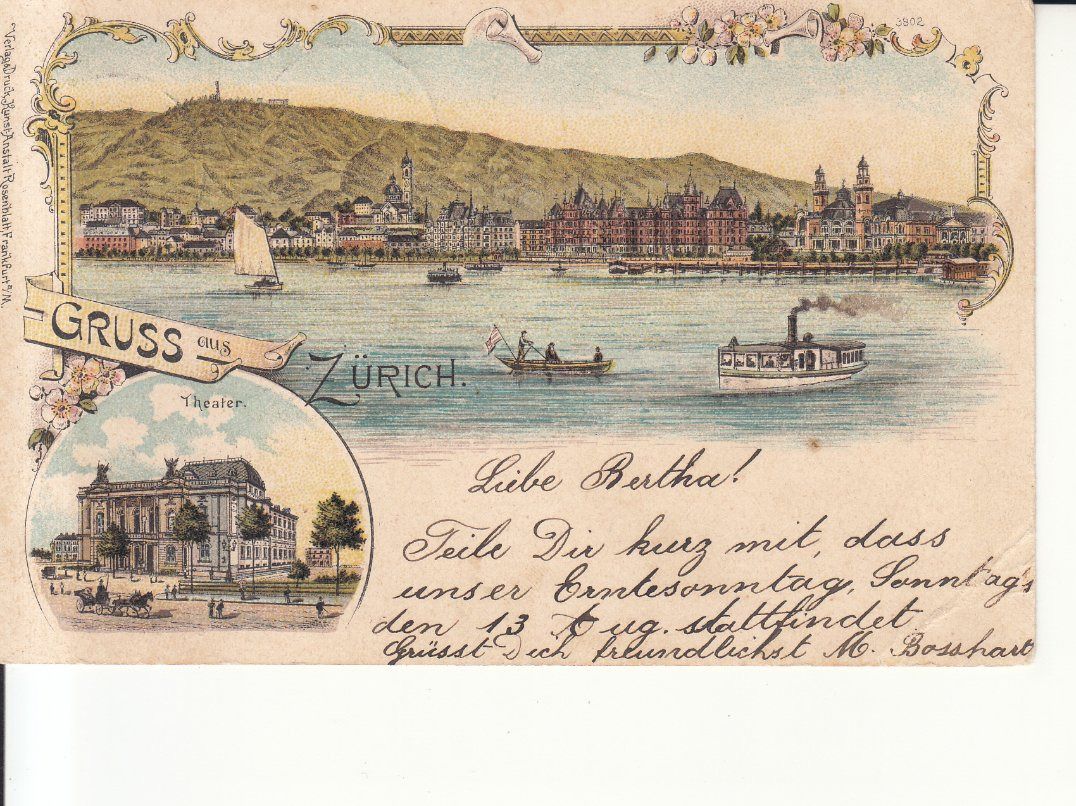 Verlag & Druck, Kunst-Anstalt Rosenblatt Frankfurt a/M.
3802
GRUSS aus
ZÜRICH.
Theater.
Liebe Bertha!
Teile Dir kurz mit, dass
unser Erntesonntag, Sonntag's
den 13 Aug. stattfindet
Grüsst Dich freundlichst M. Bosshart